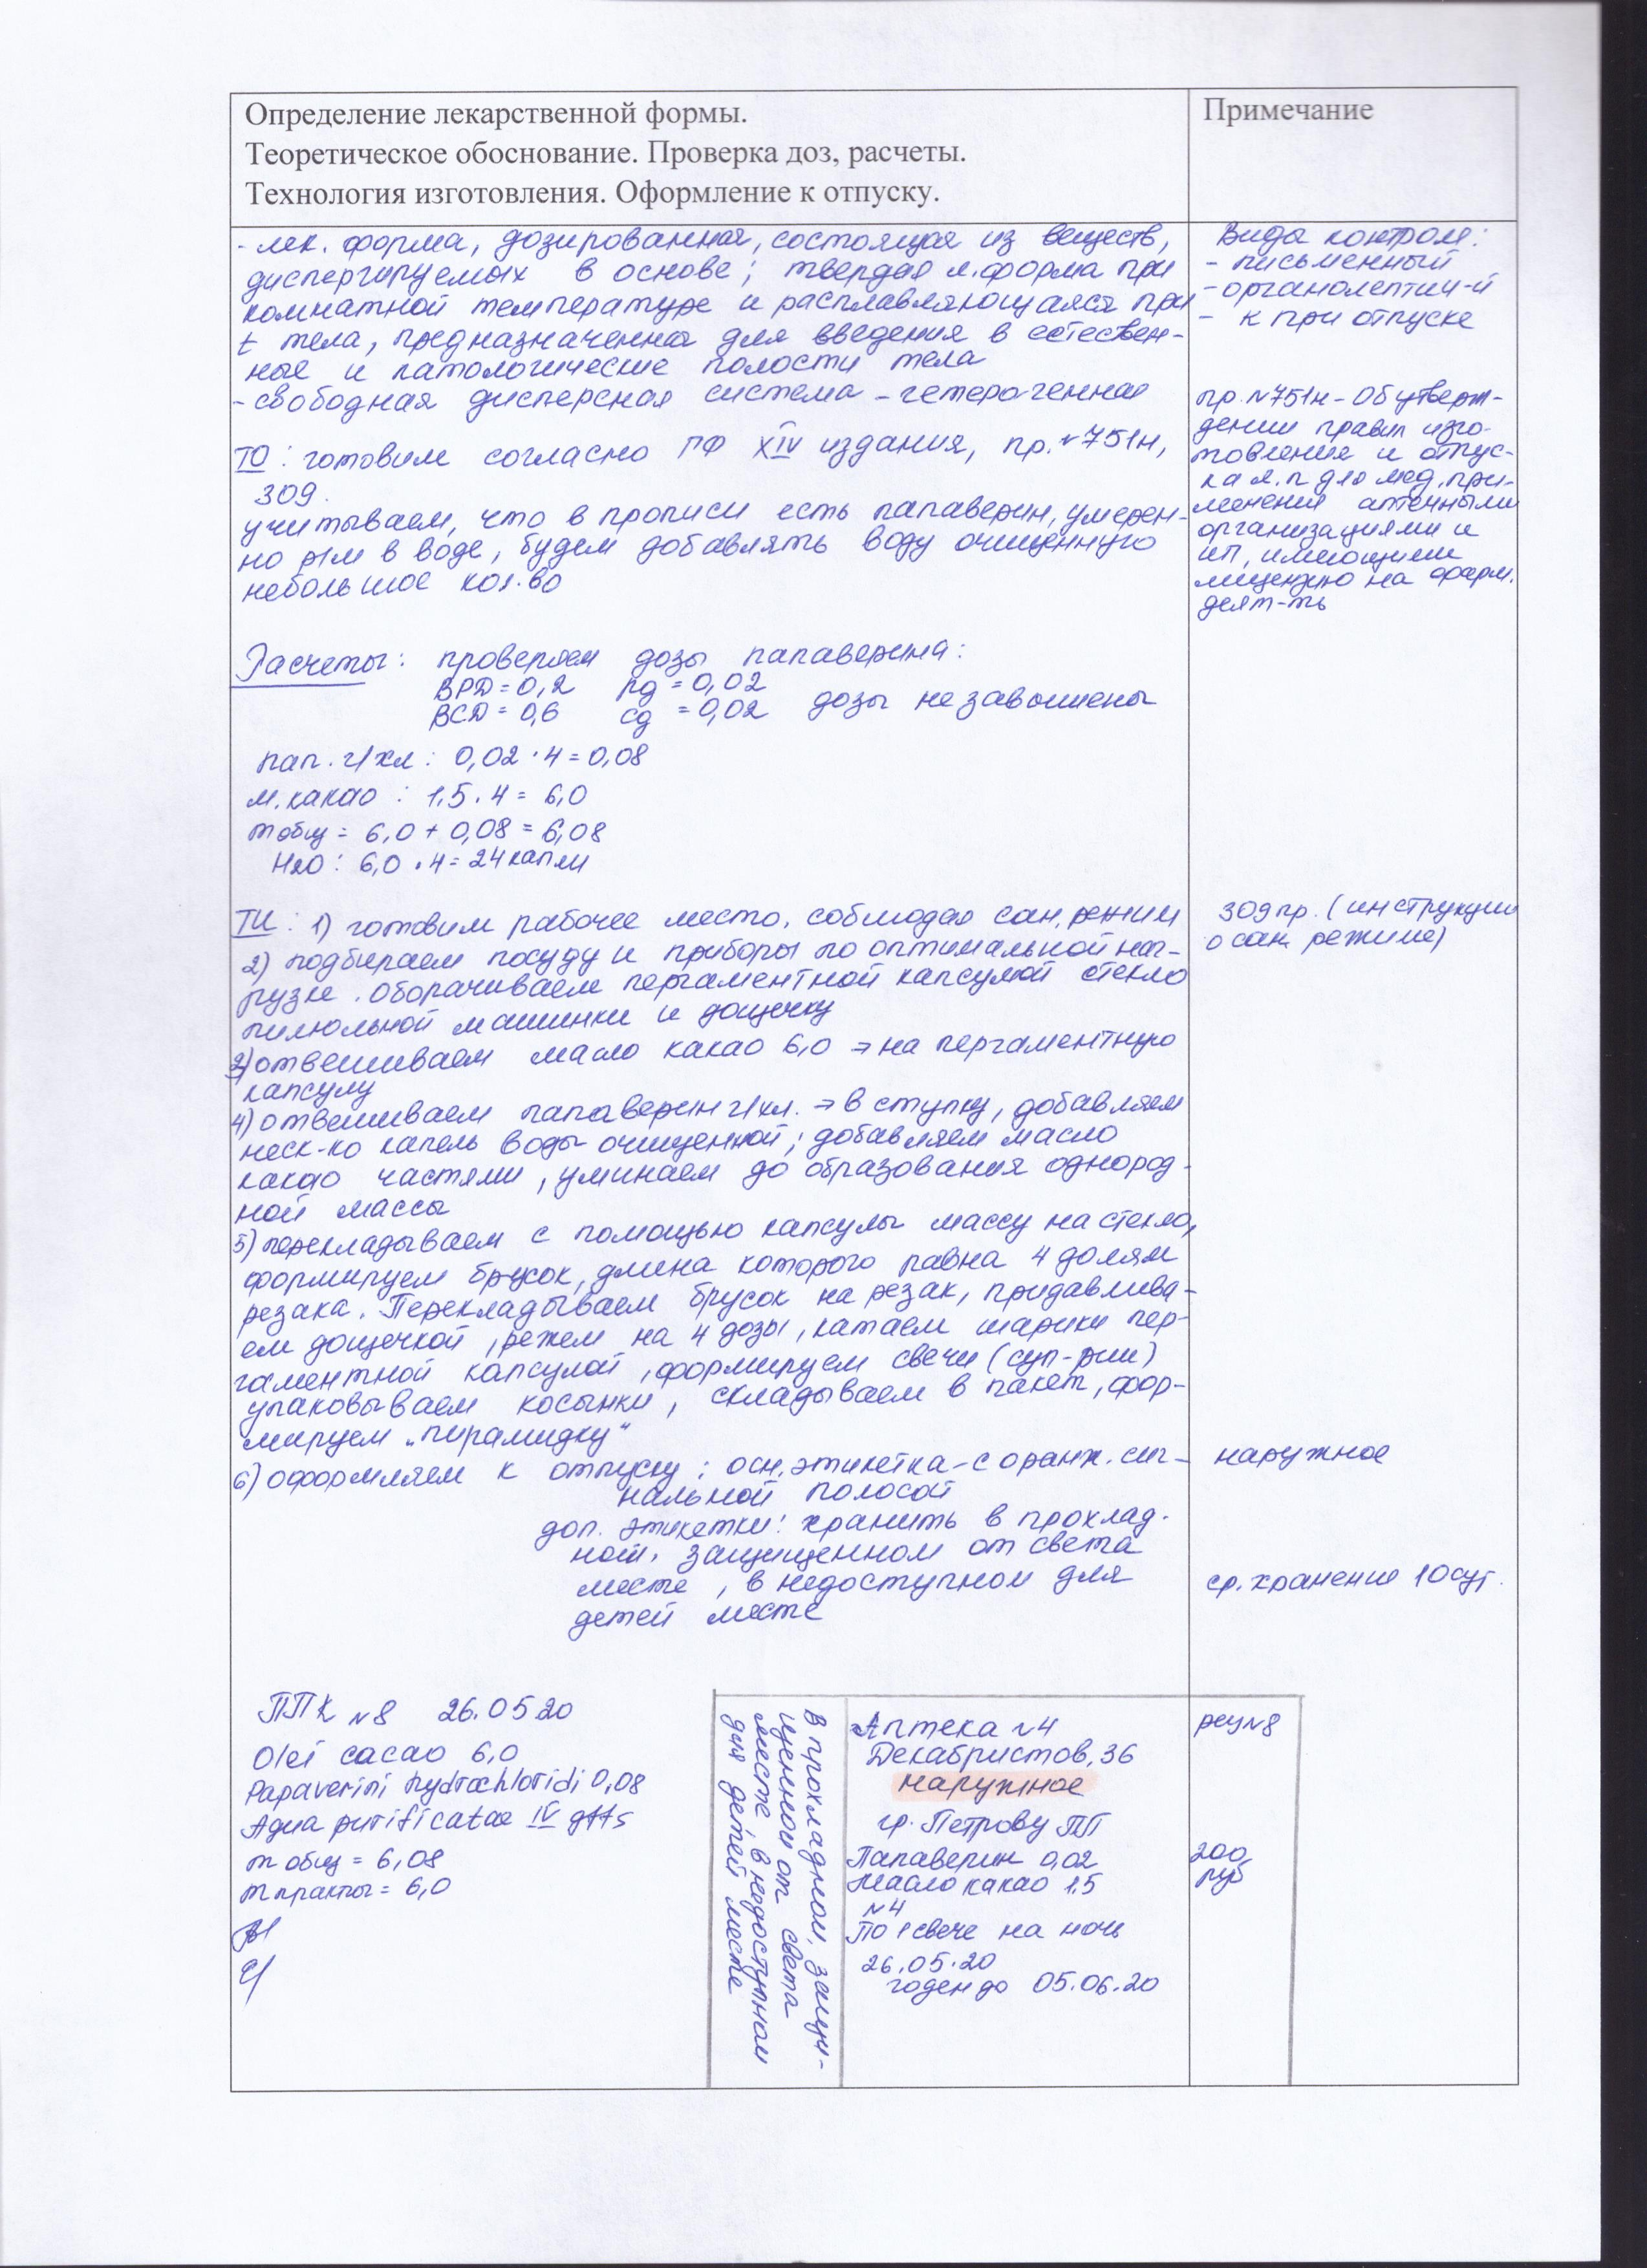 Определение лекарственной формы.
Теоретическое обоснование. Проверка доз, расчеты.
Технология изготовления. Оформление к отпуску.
Примечание
- лек. форма, дозированная, состоящая из веществ,
диспергируемых в основе; твердая л.форма при
комнатной температуре и расплавляющаяся при
t тела, предназначенна для введения в естествен-
ные и патологические полости тела
- свободная дисперсная система - гетерогенная
Виды контроля:
- письменный
- органолептич-й
- к при отпуске
ТО: готовим согласно ГФ XIV издания, пр.№751н,
309.
учитываем, что в прописи есть папаверин, умерен-
но р/м в воде, будем добавлять воду очищенную
небольшое кол.во
пр.№751н - Об утверж-
дении правил изго-
товления и отпус-
ка л.п для мед.при-
менения аптечными
организациями и
ИП, имеющими
лицензию на фарм.
деят-ть
Расчеты: проверяем дозы папаверина:
ВРД = 0,2 рд = 0,02
ВСД = 0,6 сд = 0,02 дозы не завышены
пап. г/хл: 0,02 · 4 = 0,08
м.какао : 1,5 · 4 = 6,0
m общ = 6,0 + 0,08 = 6,08
H2O: 6,0 · 4 = 24 капли
ТИ: 1) готовим рабочее место, соблюдая сан.режим
2) подбираем посуду и приборы по оптимальной наг-
рузке. Оборачиваем пергаментной капсулой стекло
пилюльной машинки и дощечку
3) отвешиваем масло какао 6,0 → на пергаментную
капсулу
4) отвешиваем папаверин г/хл. → в ступку, добавляем
неск-ко капель воды очищенной; добавляем масло
какао частями, уминаем до образования однород-
ной массы
5) перекладываем с помощью капсулы массу на стекло,
формируем брусок, длина которого равна 4 долям
резака. Перекладываем брусок на резак, придавлива-
ем дощечкой, режем на 4 дозы, катаем шарики пер-
гаментной капсулой, формируем свечи (суп-рии)
упаковываем косынки, складываем в пакет, фор-
мируем „пирамидку“
6) оформляем к отпуску: осн.этикетка - с оранж. сиг-
нальной полосой
доп. этикетки: хранить в прохлад.
ном, защищенном от света
месте, в недоступном для
детей месте
309 пр. (инструкции
о сан. режиме)
наружное
ср. хранение 10 сут.
ППК №8 26.05 20
Olei cacao 6,0
Papaverini hydrochloridi 0,08
Aqua purificatae IV gtts
m общ = 6,08
m практ = 6,0
В прохладном, защи-
щенном от света
месте, в недоступном
для детей месте
Аптека №4
Декабристов, 36
наружное
гр. Петрову ПП
Папаверин 0,02
Масло какао 1,5
№4
По 1 свече на ночь
26.05.20
годен до 05.06.20
рец №8
200
руб